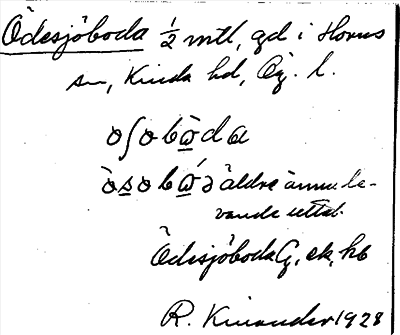 Ödesjöboda 1/2 mtl, gd i Horns
sn, Kinda hd, Ög. l.
òʃobὼda
òsobώə äldre ännu le-
vande uttal.
Ödesjöboda G, ek, hb
R. Kinander 1928